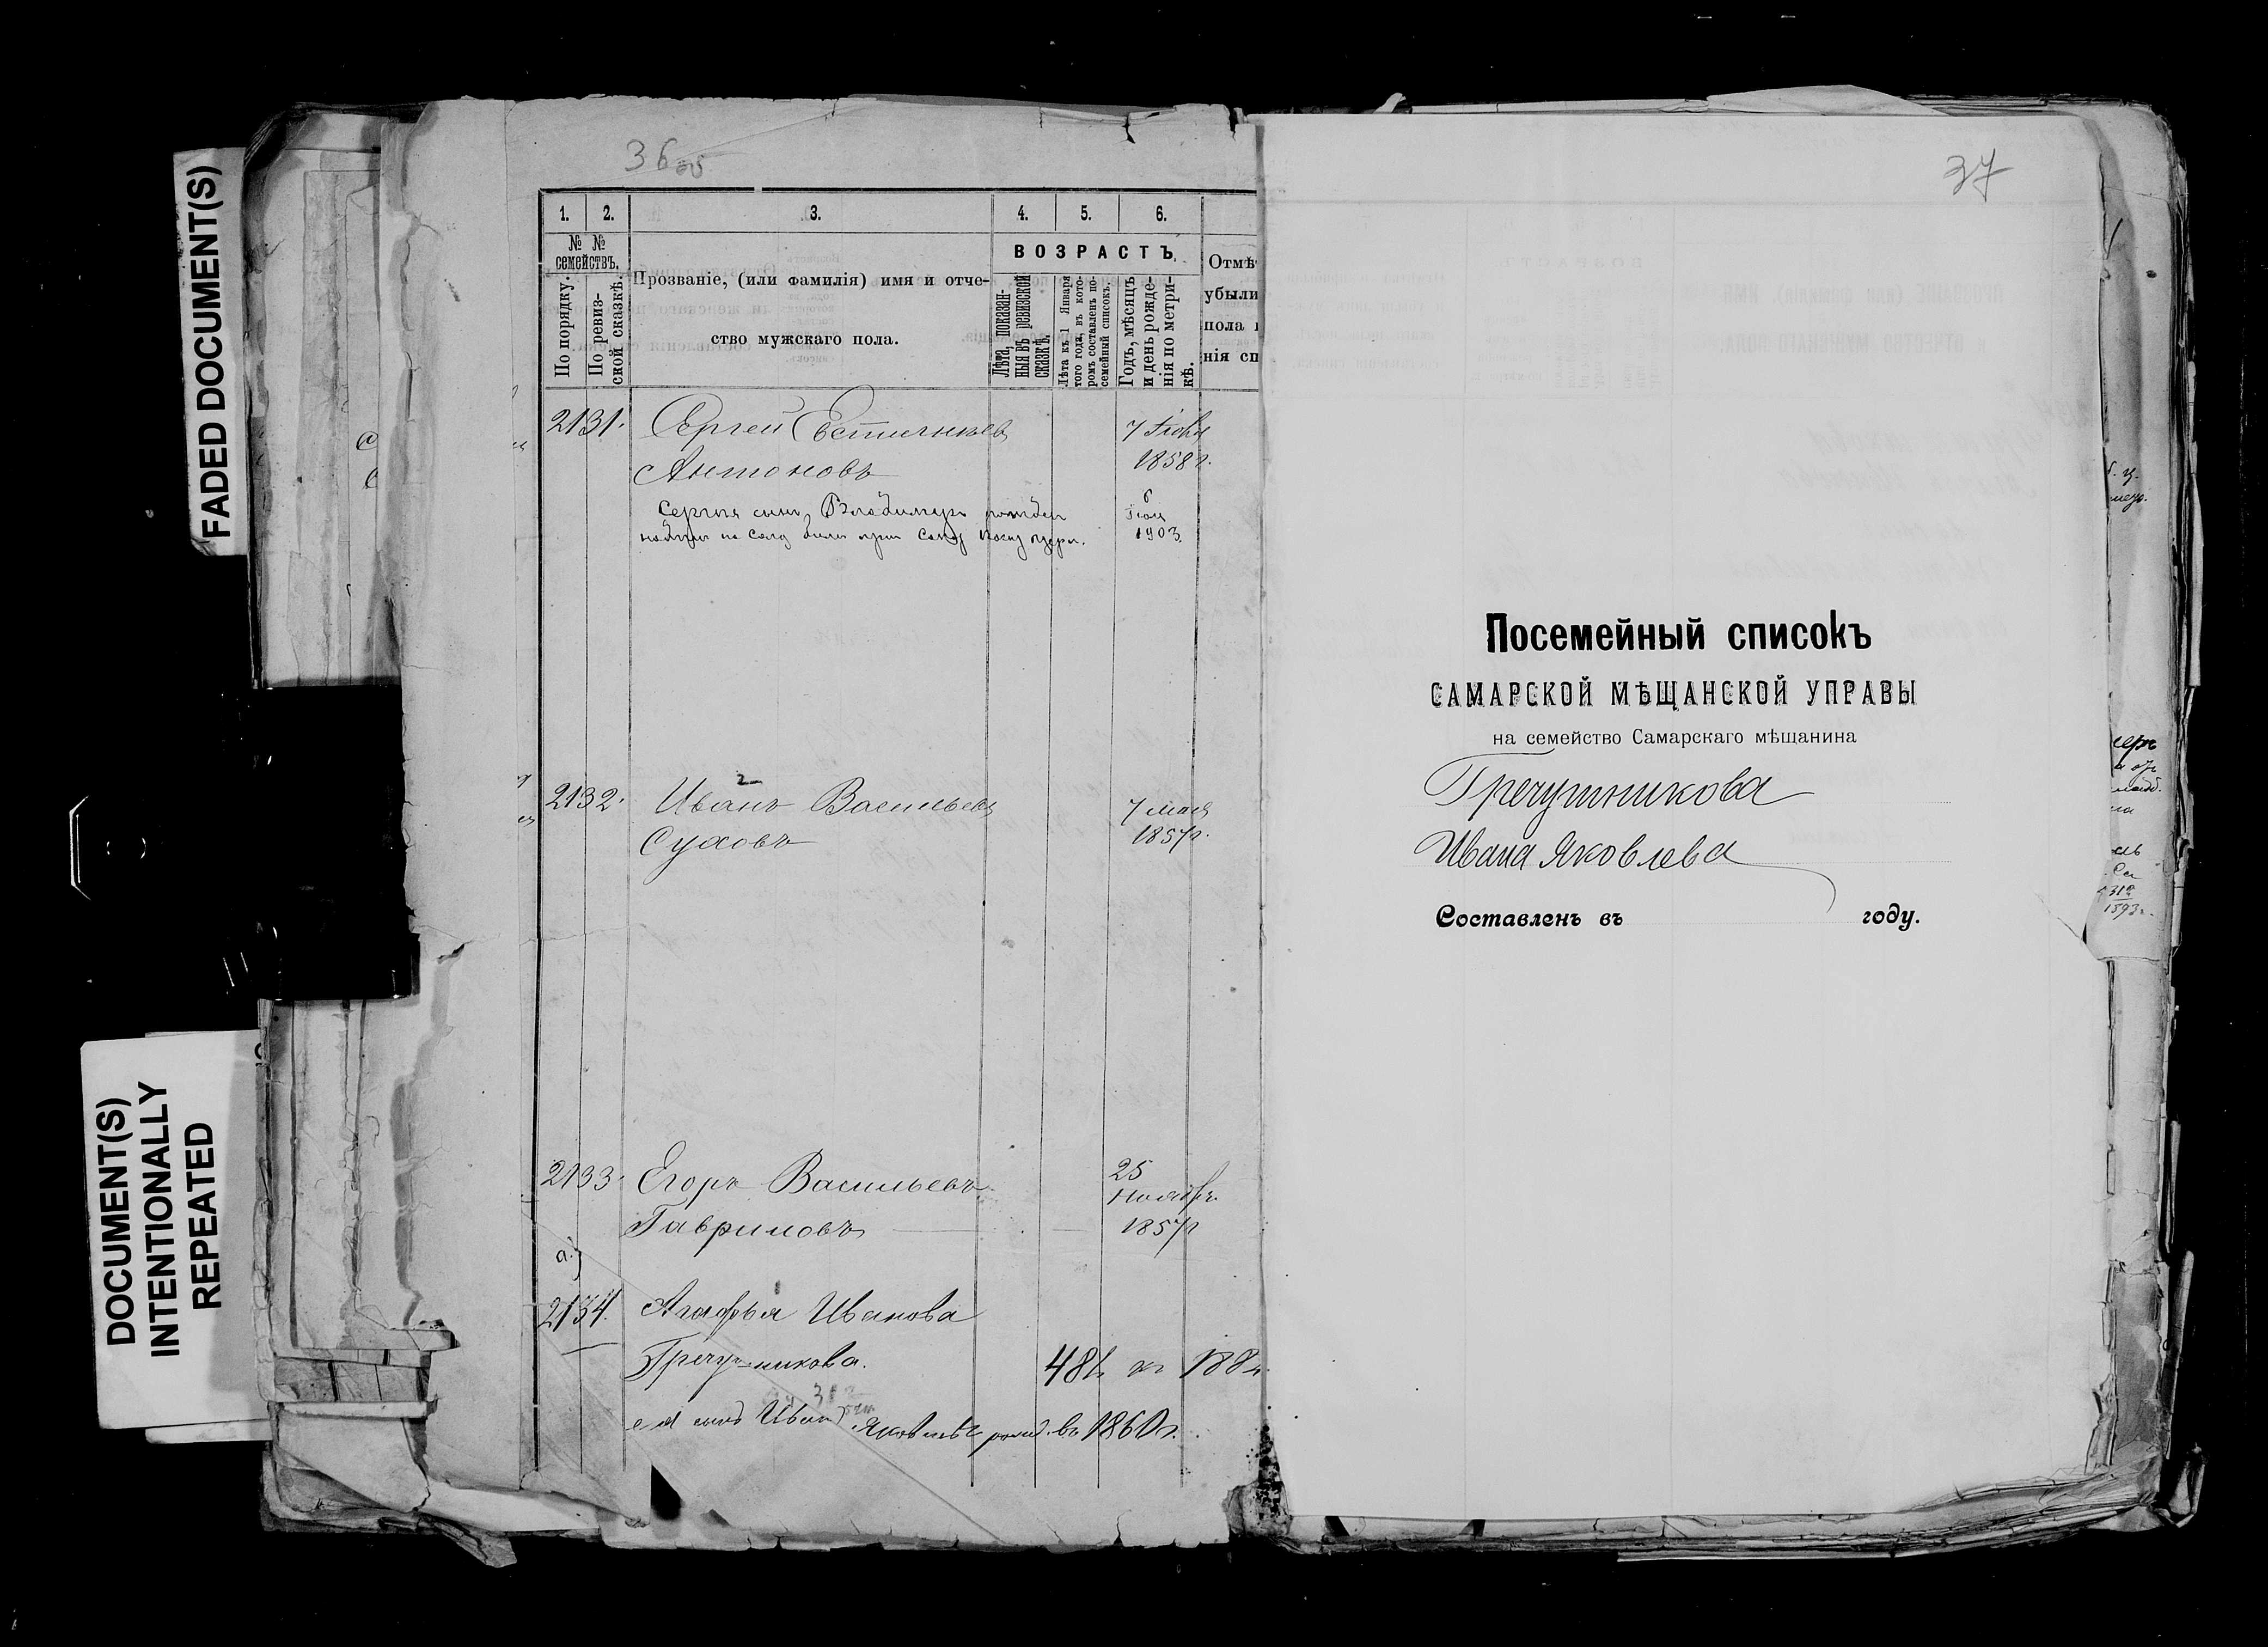 FADED DOCUMENT(S)
DOCUMENT(S)
INTENTIONALLY
REPEATED
36 об
1. 2. 3. 4. 5. 6.
№ №
семействъ.
По порядку.
По ревиз-
ской сказкѣ.
Прозваніе, (или фамилія) имя и отче-
ство мужскаго пола.
ВОЗРАСТЪ.
Лѣта, показан-
ныя въ ревизской
сказкѣ.
Лѣта къ 1 Января
того года, въ кото-
ромъ составленъ по-
семейный списокъ.
Годъ, мѣсяцъ
и день рожде-
нія по метри-
кѣ.
Отмѣ
убыли
пола и
нія сп
2131. Сергей 7
Антоновъ 1858 г.
Сергѣя сынъ Владимиръ 6
1903
2132. Иванъ Васильевъ 7 мая
Суховъ 1857 г.
2133. Егоръ Васильевъ 25
Ноября
Гавриловъ 1857 г
а)
2134. Агафья Иванова
Гречушникова. 48 л. къ 188
ея сынъ Иванъ Яковлевъ рожд. въ 1860 г.
37
Посемейный списокъ
САМАРСКОЙ МѢЩАНСКОЙ УПРАВЫ
на семейство Самарскаго мѣщанина
Гречушникова
Ивана Яковлева
Составленъ въ году.
1893 г.